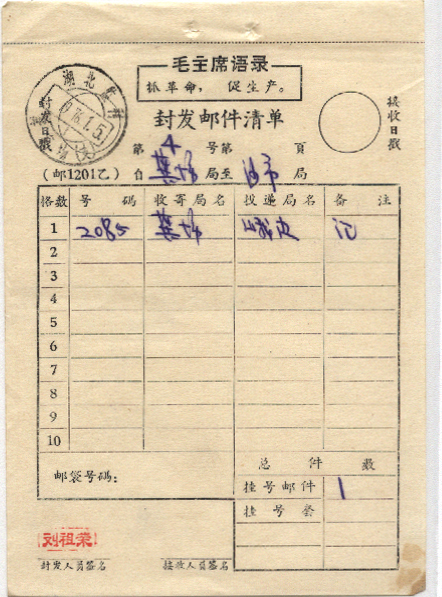 毛主席语录
抓革命，促生产。
封发邮件清单
湖北
1976.1.5
封发日戳
接收日戳
第4号第 頁
(邮1201乙) 自 局至 局
格数 号码 收寄局名 投递局名 备注
1 2085
2
3
4
5
6
7
8
9
10
总件数
邮袋号码：
挂号邮件 1
挂号套
刘祖荣
封发人员签名 接收人员签名